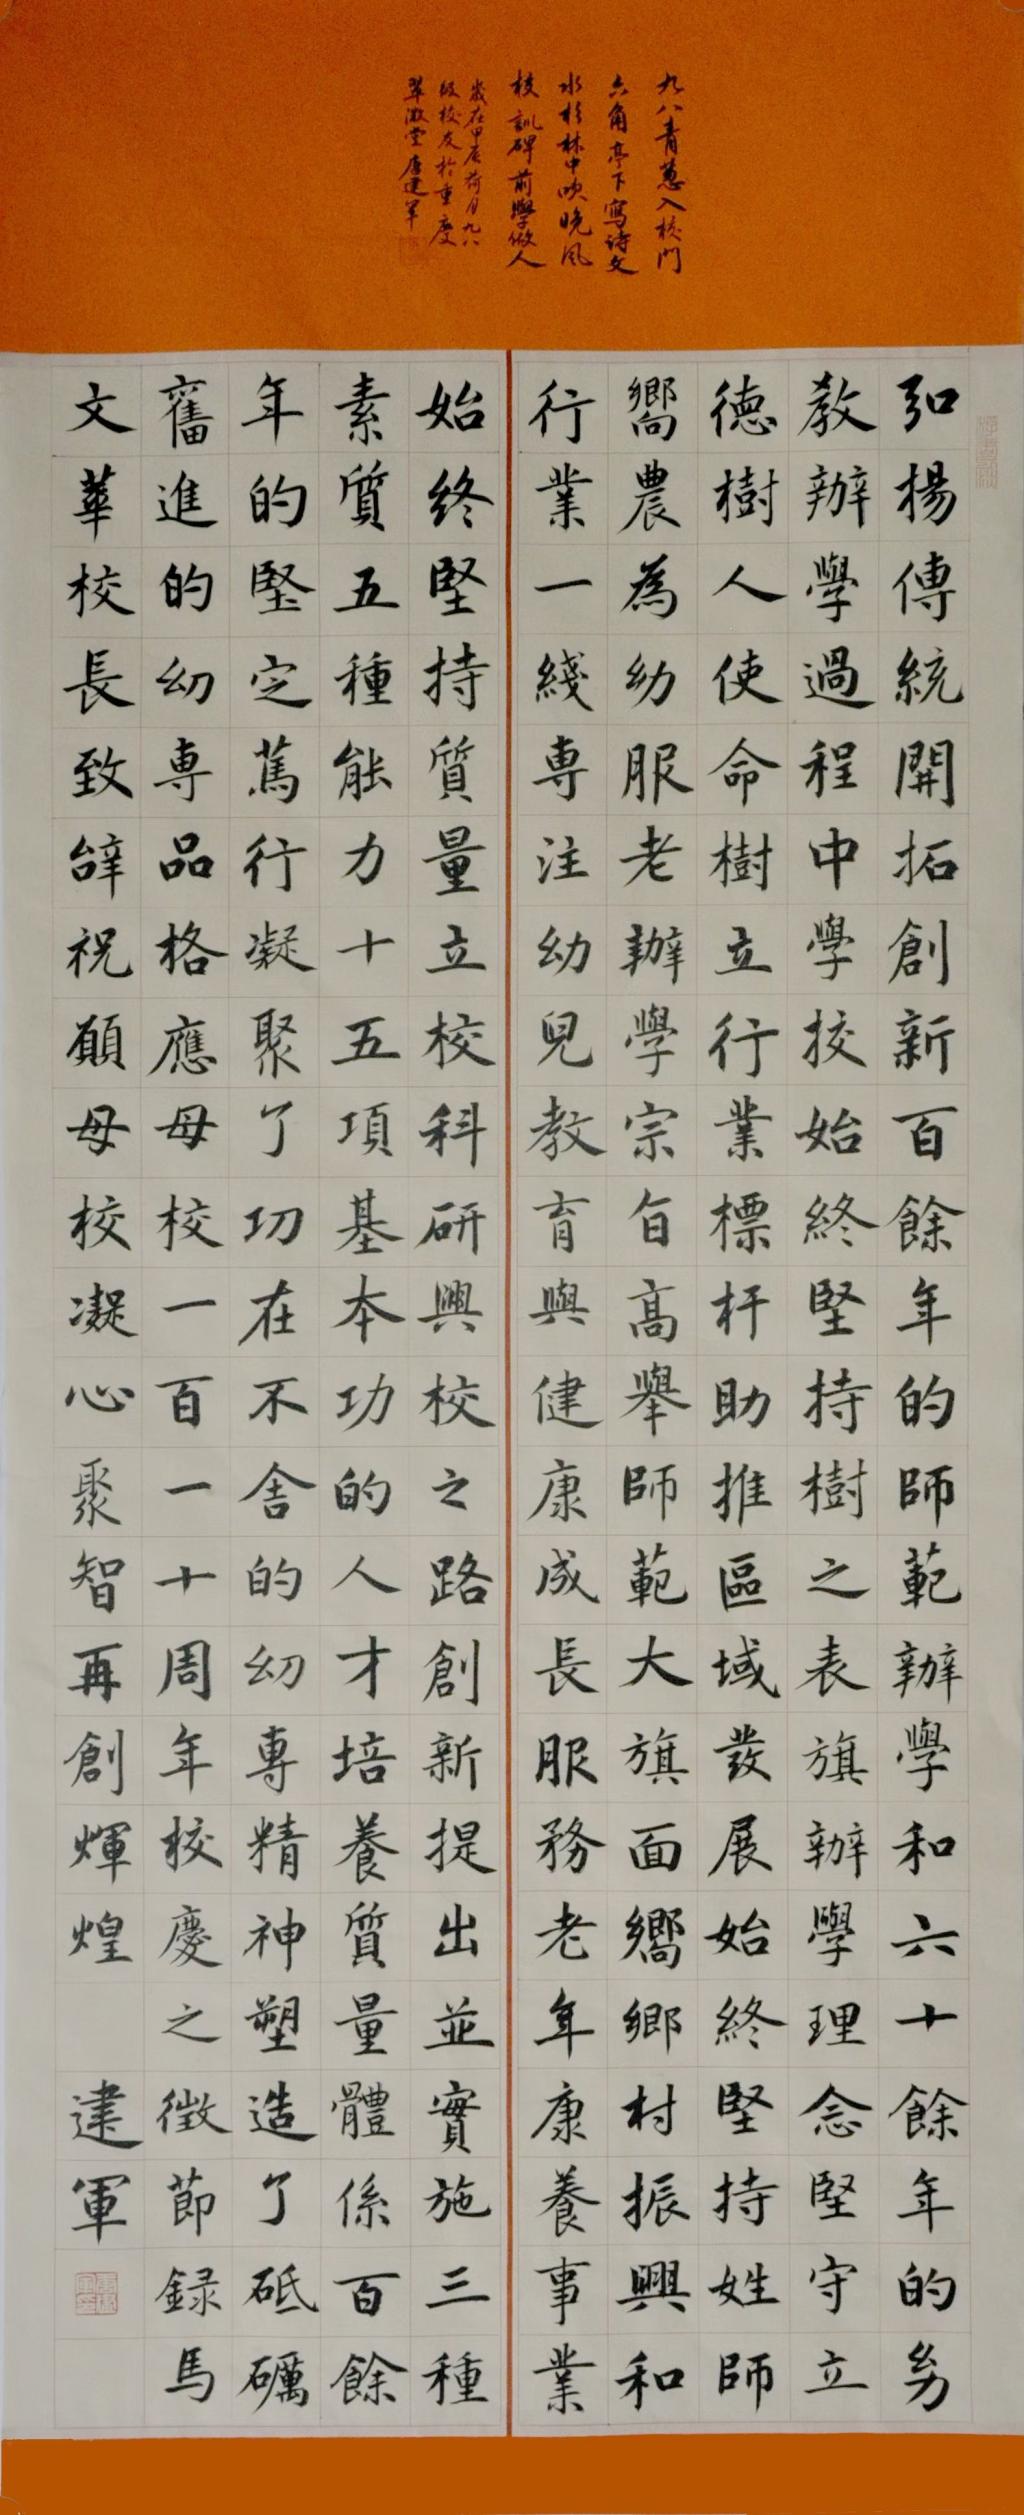 九八青蔥入校門
六角亭下寫诗文
水杉林中吹晚风
校訓碑前學做人
歲在甲辰荷月九八
級校友於重慶
翠微堂唐建军
弘楊傳統開拓創新百餘年的師範辦學和六十餘年的幼
教辦學過程中學校始終堅持樹之表旗辦學理念堅守立
德樹人使命樹立行業標杆助推區域發展始終堅持姓師
嚮農為幼服老辦學宗旨高舉師範大旗面嚮鄉村振興和
行業一綫專注幼兒教育與健康成長服務老年康養事業
始終堅持質量立校科研興校之路創新提出並實施三種
素質五種能力十五項基本功的人才培養質量體係百餘
年的堅定篤行凝聚了功在不舍的幼專精神塑造了砥礪
奮進的幼專品格應母校一百一十周年校慶之徵節録馬
文華校長致辭祝願母校凝心聚智再創輝煌 建軍